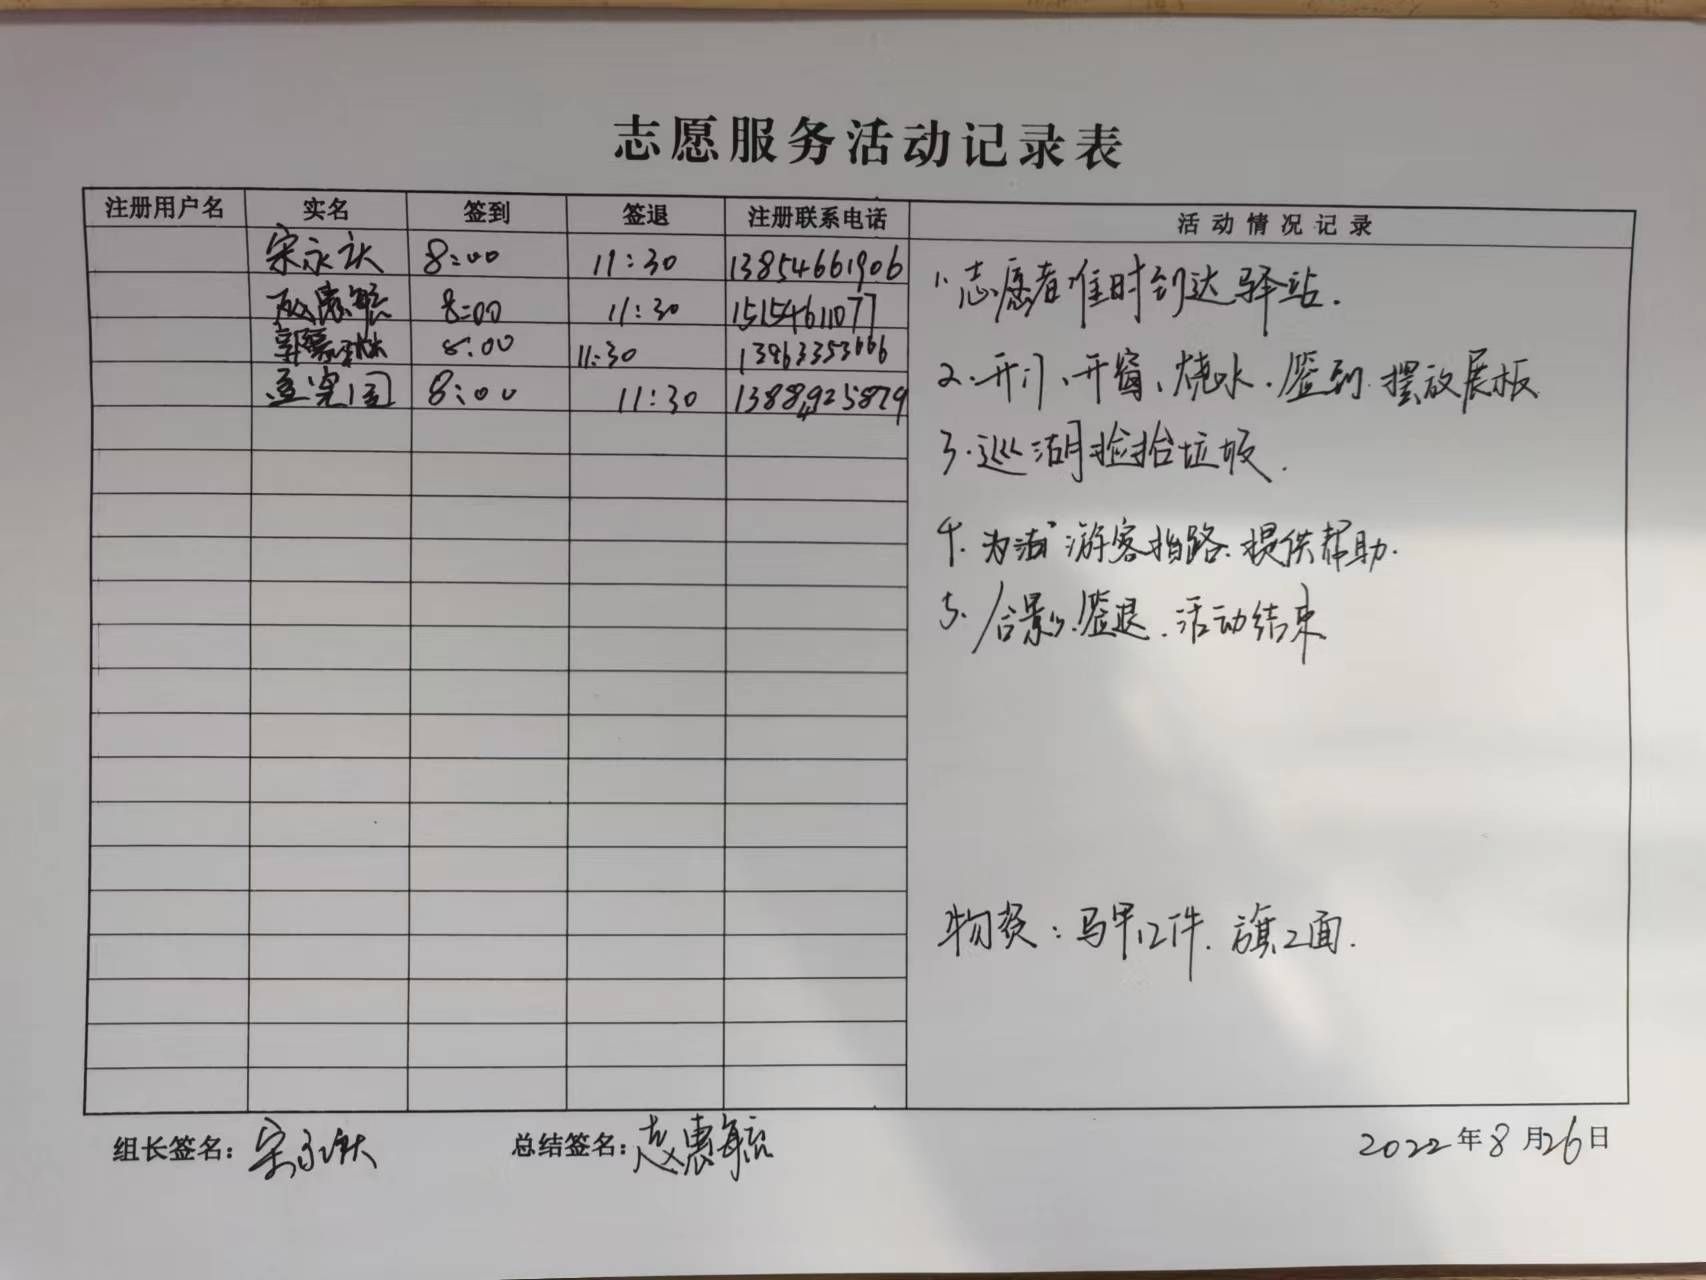 志愿服务活动记录表
注册用户名 实名 签到 签退 注册联系电话 活动情况记录
宋永 8:00 11:30 13854661906
赵惠 8:00 11:30 15154611077
郭 8:00 11:30 13963353666
孟宪国 8:00 11:30 925879
1.志愿者准时到达驿站.
2.开门、开窗、烧水.签到.摆放展板
3.巡湖捡拾垃圾.
4.为 游客指路.提供帮助.
5.合影.签退.活动结束
物资:马甲12件.旗2面.
组长签名:宋永 总结签名:赵惠 2022年8月26日